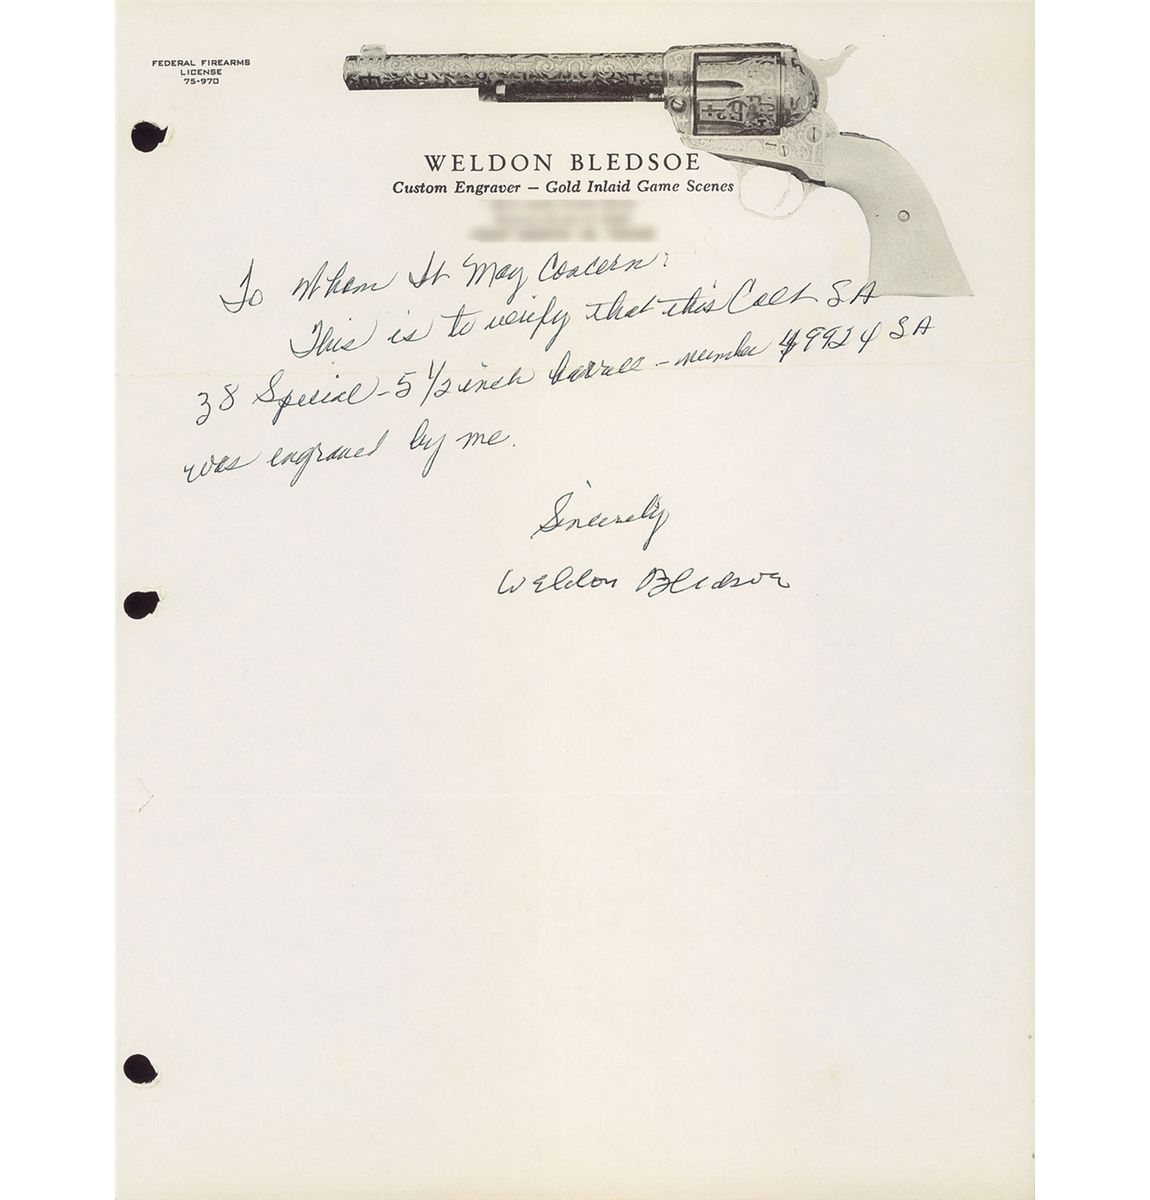 FEDERAL FIREARMS
LICENSE
75-970
WELDON BLEDSOE
Custom Engraver — Gold Inlaid Game Scenes
To Whom It May Concern:
This is to verify that this Colt SA
38 Special - 5 1/2 inch barrell - number 49924 SA
was engraved by me.
Sincerely
Weldon Bledsoe